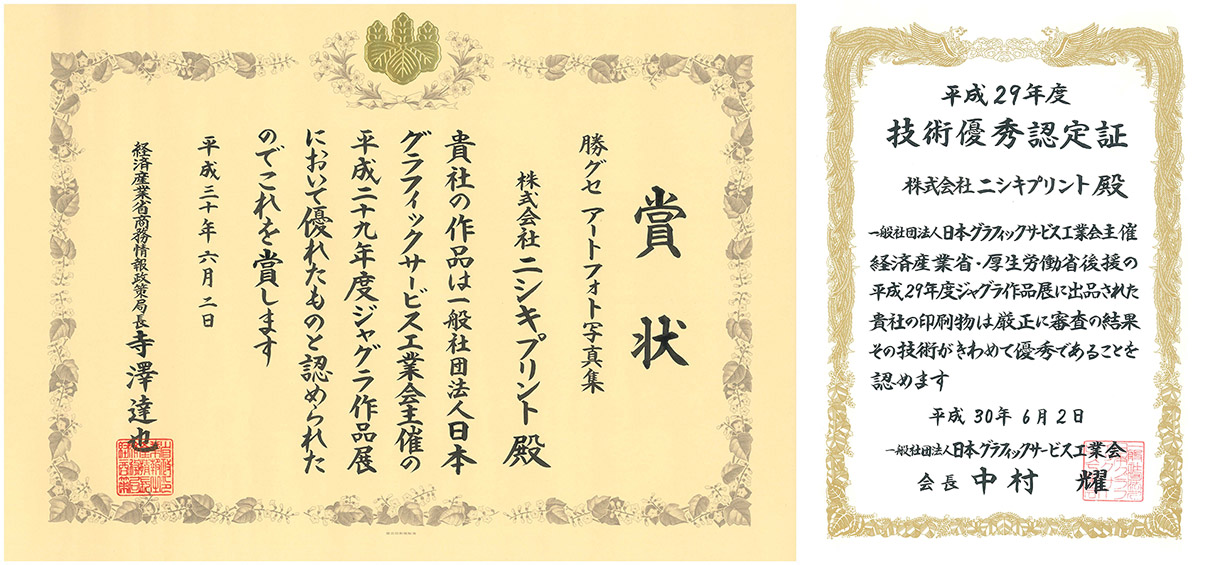 賞状
勝グセ アートフォト写真集
株式会社 ニシキプリント 殿
貴社の作品は一般社団法人日本
グラフィックサービス工業会主催の
平成二十九年度ジャグラ作品展
において優れたものと認められた
のでこれを賞します
平成三十年六月二日
経済産業省商務情報政策局長 寺澤達也
平成29年度
技術優秀認定証
株式会社 ニシキプリント 殿
一般社団法人日本グラフィックサービス工業会主催
経済産業省・厚生労働省後援の
平成29年度ジャグラ作品展に出品された
貴社の印刷物は厳正に審査の結果
その技術がきわめて優秀であることを
認めます
平成30年6月2日
一般社団法人日本グラフィックサービス工業会
会長 中村 耀